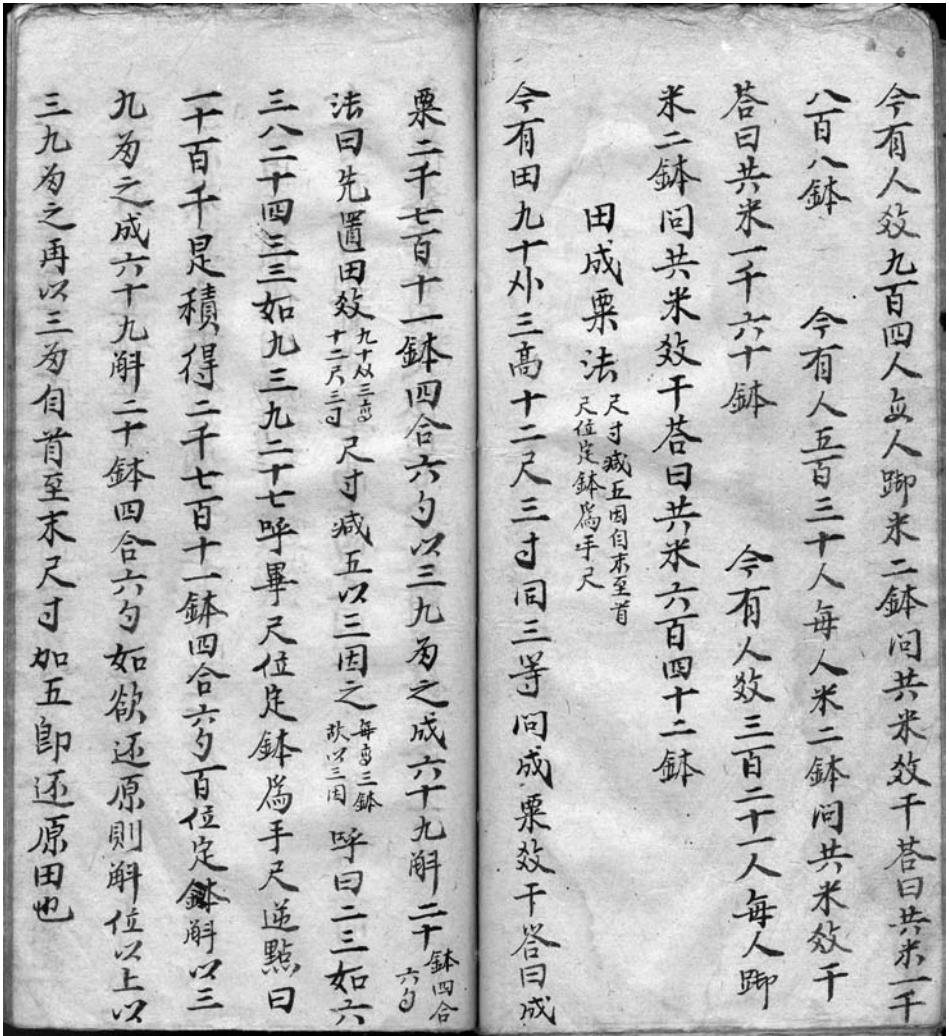 今有人效九百四人每人踋米二鉢問共米效干荅曰共米一千
八百八鉢　今有人五百三十人每人米二鉢問共米效干
荅曰共米一千六十鉢　今有人效三百二十一人每人踋
米二鉢問共米效干荅曰共米六百四十二鉢
田成粟法
尺寸减五因自末至首
尺位定鉢爲手尺
今有田九十㐌三高十二尺三寸同三等問成粟效干答曰成
粟二千七百十一鉢四合六勺以三九为之成六十九斛二十
鉢四合
六勺
法曰先置田效
九十㐌三高
十二尺三寸
尺寸减五以三因之
每高三鉢
故以三因
呼曰二三如六
三八二十四三三如九三九二十七呼畢尺位定鉢爲手尺逆點曰
一十百千是積得二千七百十一鉢四合六勺百位定斛以三
九为之成六十九斛二十鉢四合六勺如欲还原則斛位以上以
三九为之再以三为自首至末尺寸加五即还原田也